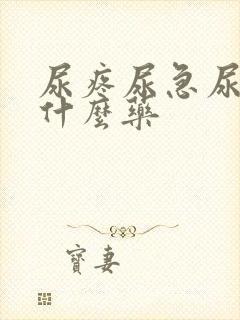 尿疼尿急尿
什麼藥
寶妻